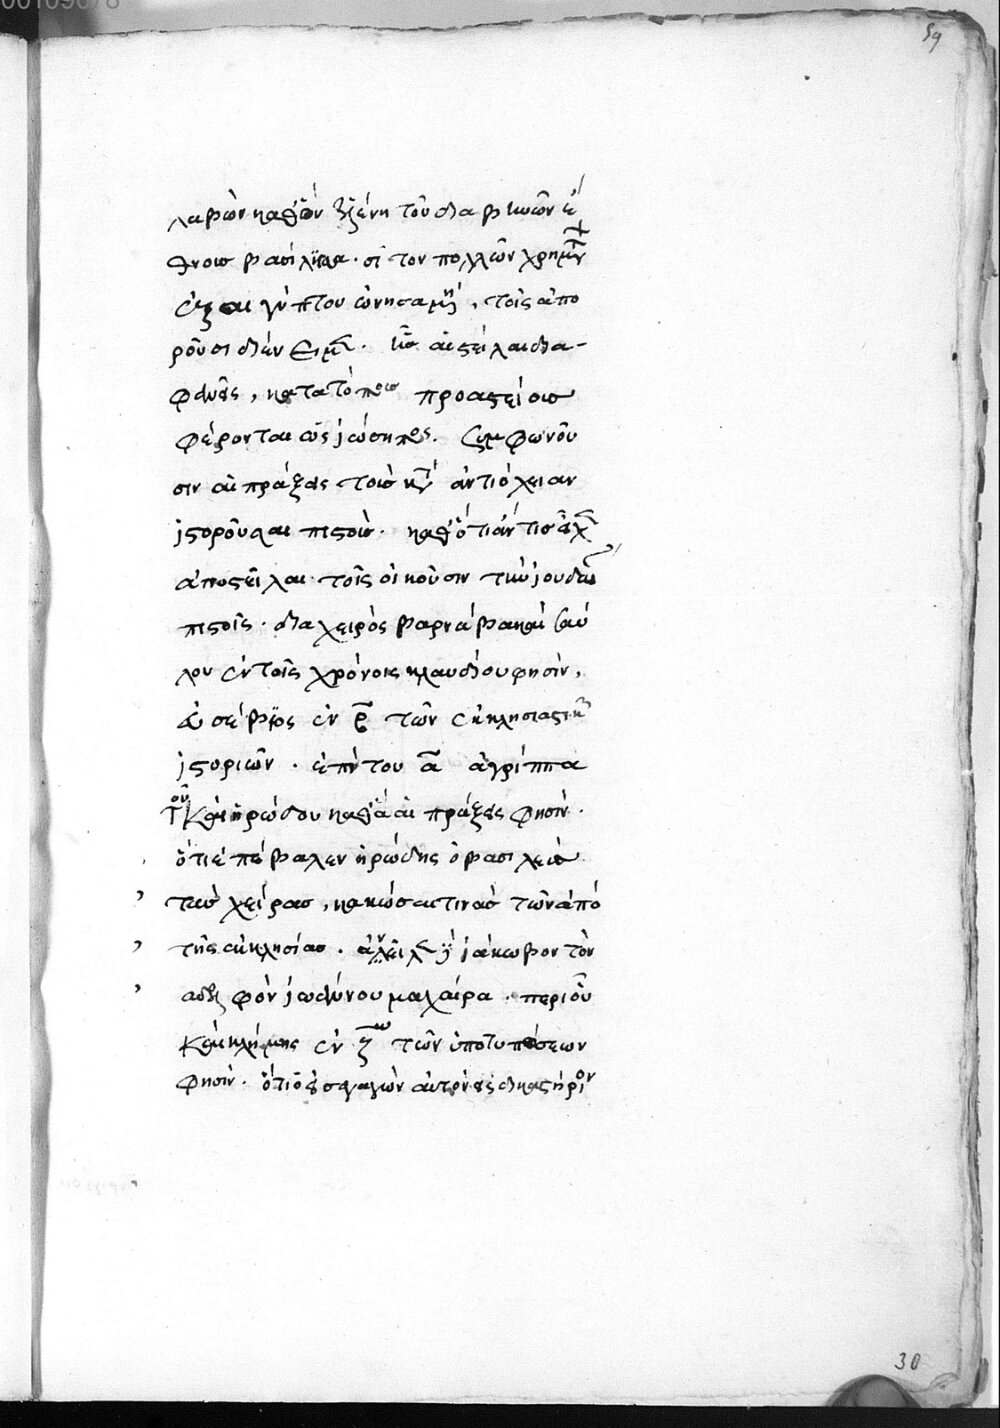 59
λαβὼν καθ' ὃν ἑλένη τῶν ἀδιαβηνῶν ἔ
θνους βασίλισσα. σῖτον πολλῶν χρημάτων
ἐξ αιγύπτου ὠνησαμένη, τοῖς ἀπο
ροῦσι διένειμε. ἧς αἱ στῆλαι δια-
φανεῖς, κατα τόπους προαστείοις
φέρονται ὡς ἰώσηπος. συμφωνοῦ
σιν αἱ πράξεις τοὺς κατ' ἀντιόχειαν
ἱστοροῦσαι πιστοὺς. καθότι ἄν τις εἶχε
ἀποστεῖλαι τοῖς οἰκοῦσιν τὴν ἰουδαίαν
πιστοῖς. δια χειρὸς βαρνάβα καὶ σαύ
λου ἐν τοῖς χρόνοις κλαυδίου φησὶν,
εὐσέβιος ἐν β τῶν ἐκκλησιαστικῶν
ἱστοριῶν. ἐπὶ του α ἀγρίππα
τοῦ καὶ ἡρώδου καθὰ αἱ πράξεις φησὶν.
ὅτι ἐπέβαλεν ἡρώδης ὁ βασιλεὺς
τὰς χεῖρας, κακῶσαι τινὰς τῶν ἀπὸ
τῆς ἐκκλησίας. ἀνεῖλε δὲ ἰάκωβον τὸν
αδελφὸν ἰωάννου μαχαίρα. περὶ οὗ
καὶ κλήμης ἐν ζω τῶν ὑποτυπώσεων
φησὶν. ὅτι ὁ εἰσαγαγὼν αὐτὸν εἰς δικαστήριον
30